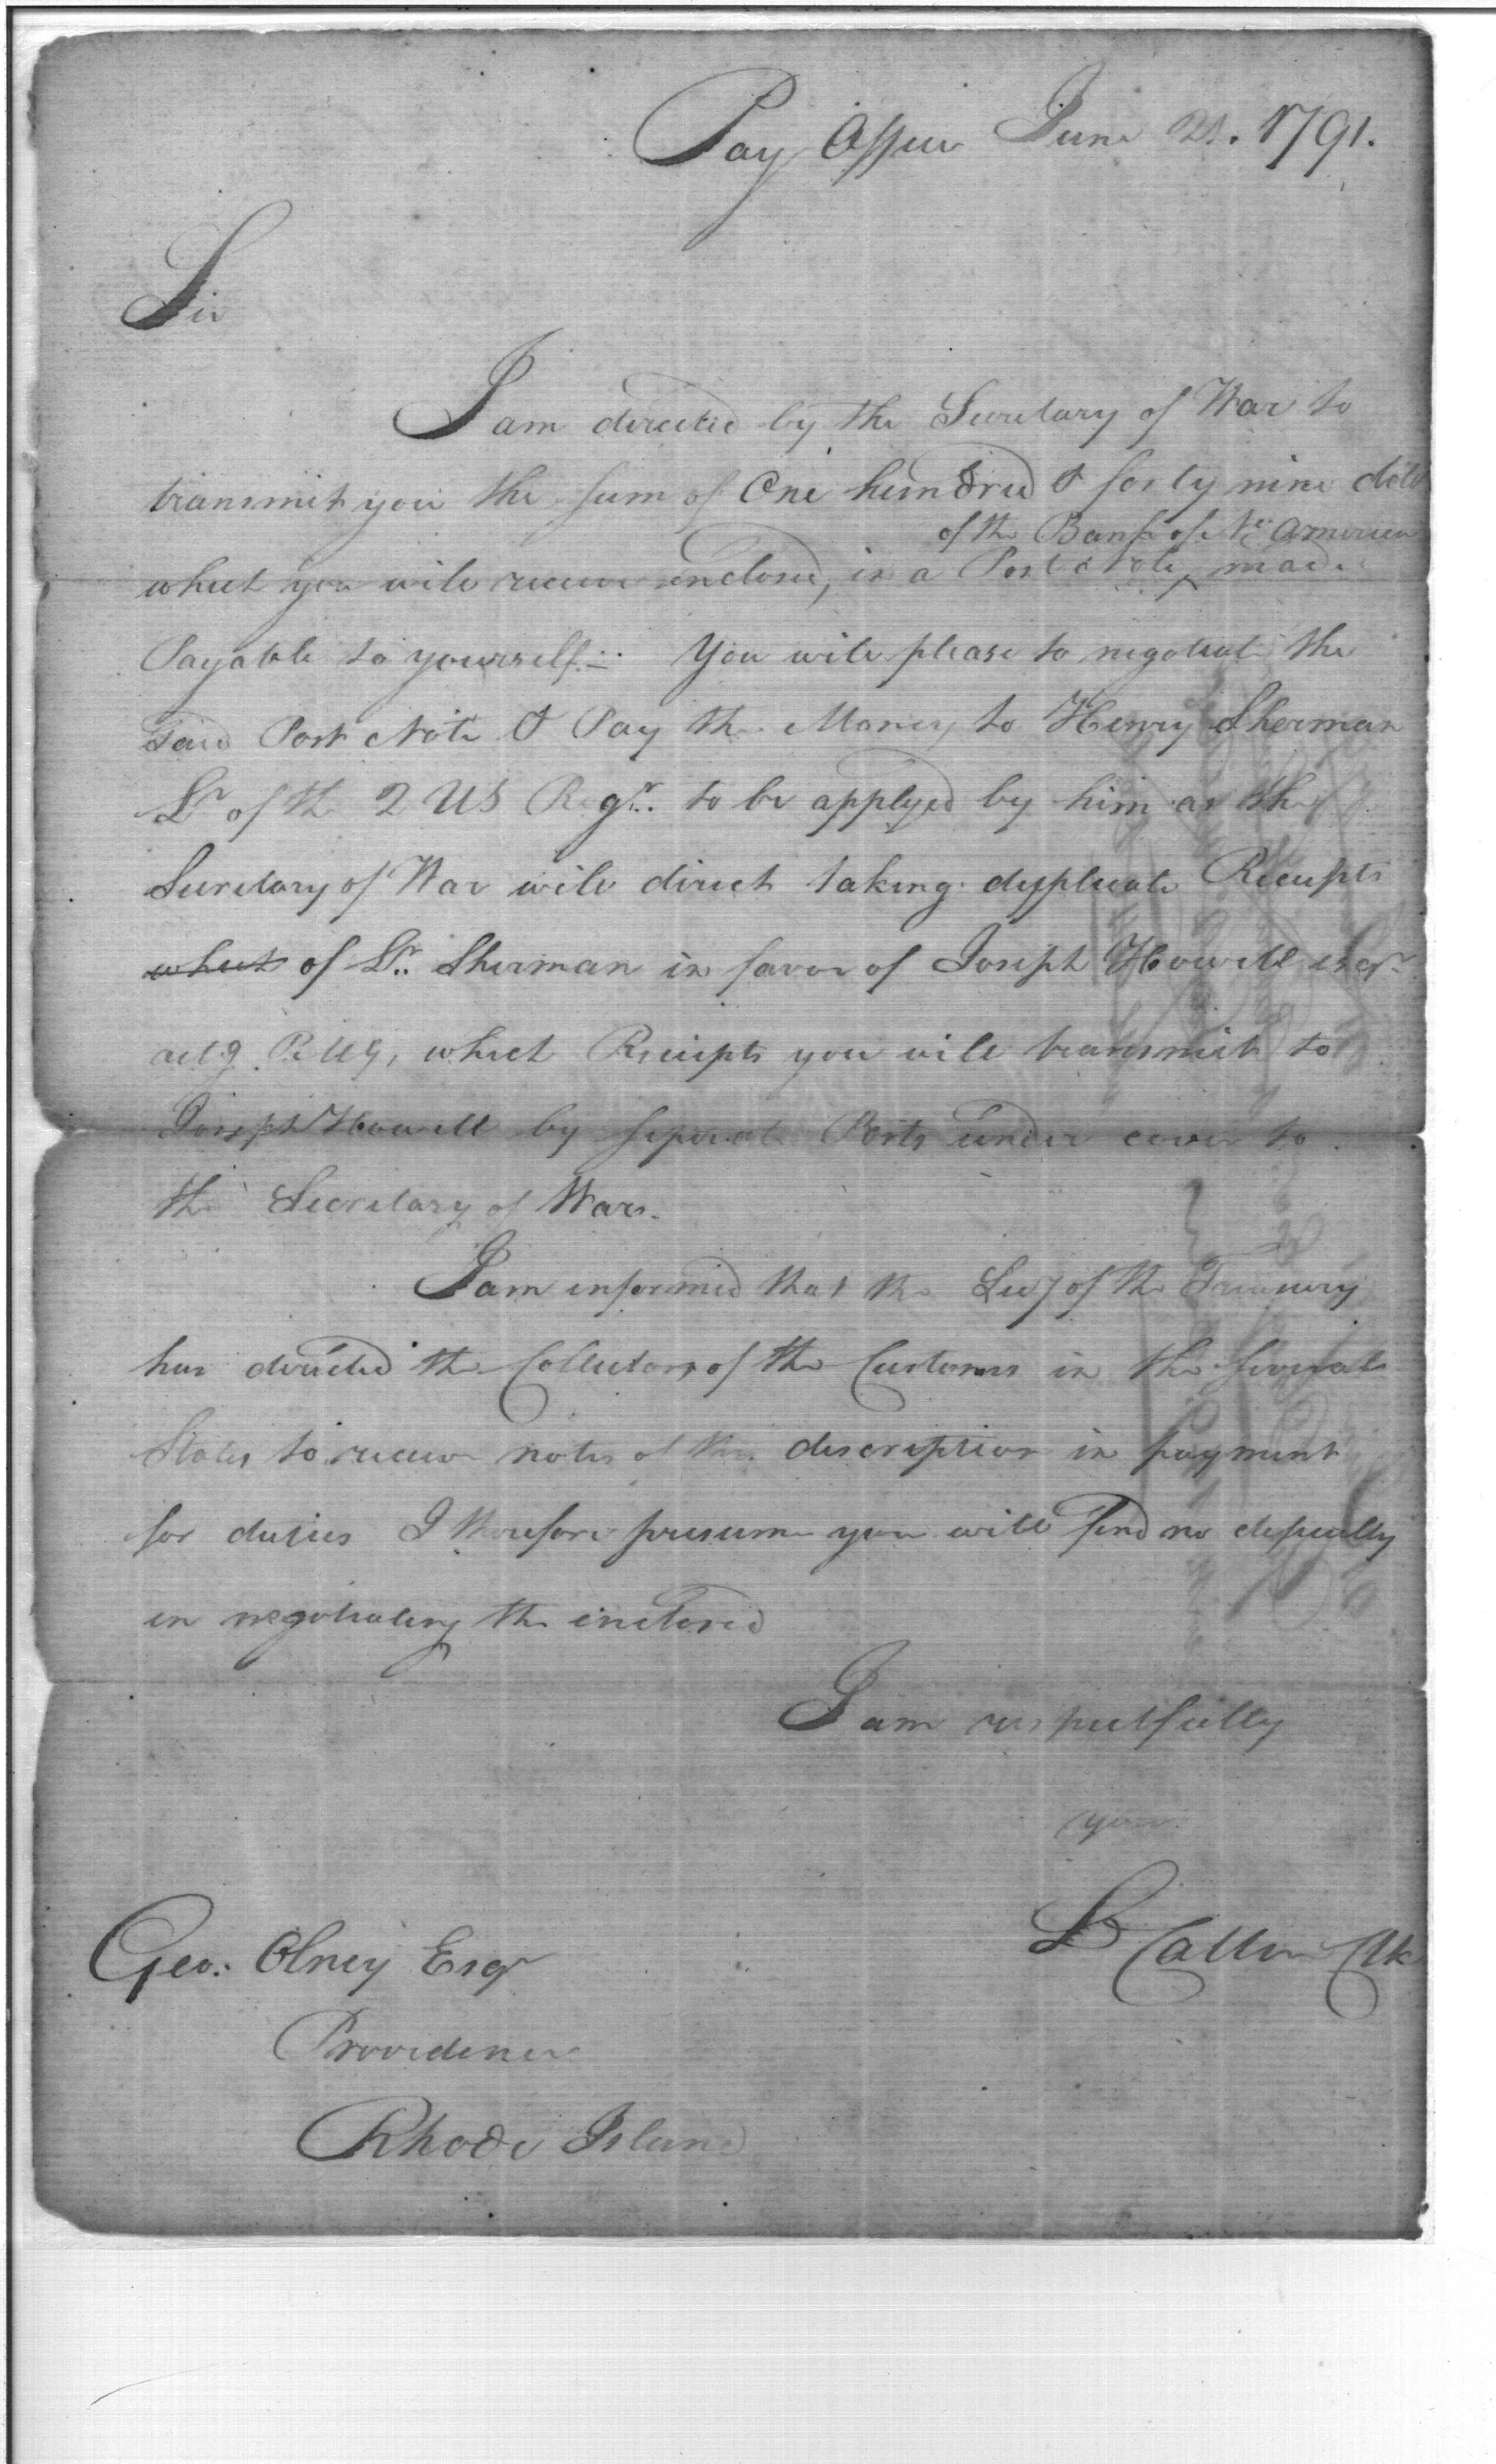 Pay Office June 21. 1791.
Sir
I am directed by the Secretary of War to
transmit you the sum of One hundred & forty nine dolls
of the Bank of No. America
which you will receive enclosed, in a Post Note made
Payable to yourself.— You will please to negotiate the
said Post Note & Pay the Money to Henry Sherman
Lt of the 2 US Regt. to be applyed by him as the
Secretary of War will direct taking dupplicate Receipts
which of Lt. Sherman in favor of Joseph Howell Esqr
actg P.M.G, which Receipts you will transmit to
Joseph Howell by seperate Posts under cover to
the Secretary of War.
I am informed that the Secy of the Treasury
has directed the Collectors of the Customs in the several
States to receive notes of this discription in payment
for duties I therefore presume you will find no dificulty
in negotiating the inclosed
I am respectfully
your
Geo: Olney Esqr
Clk
Providence
Rhode Island